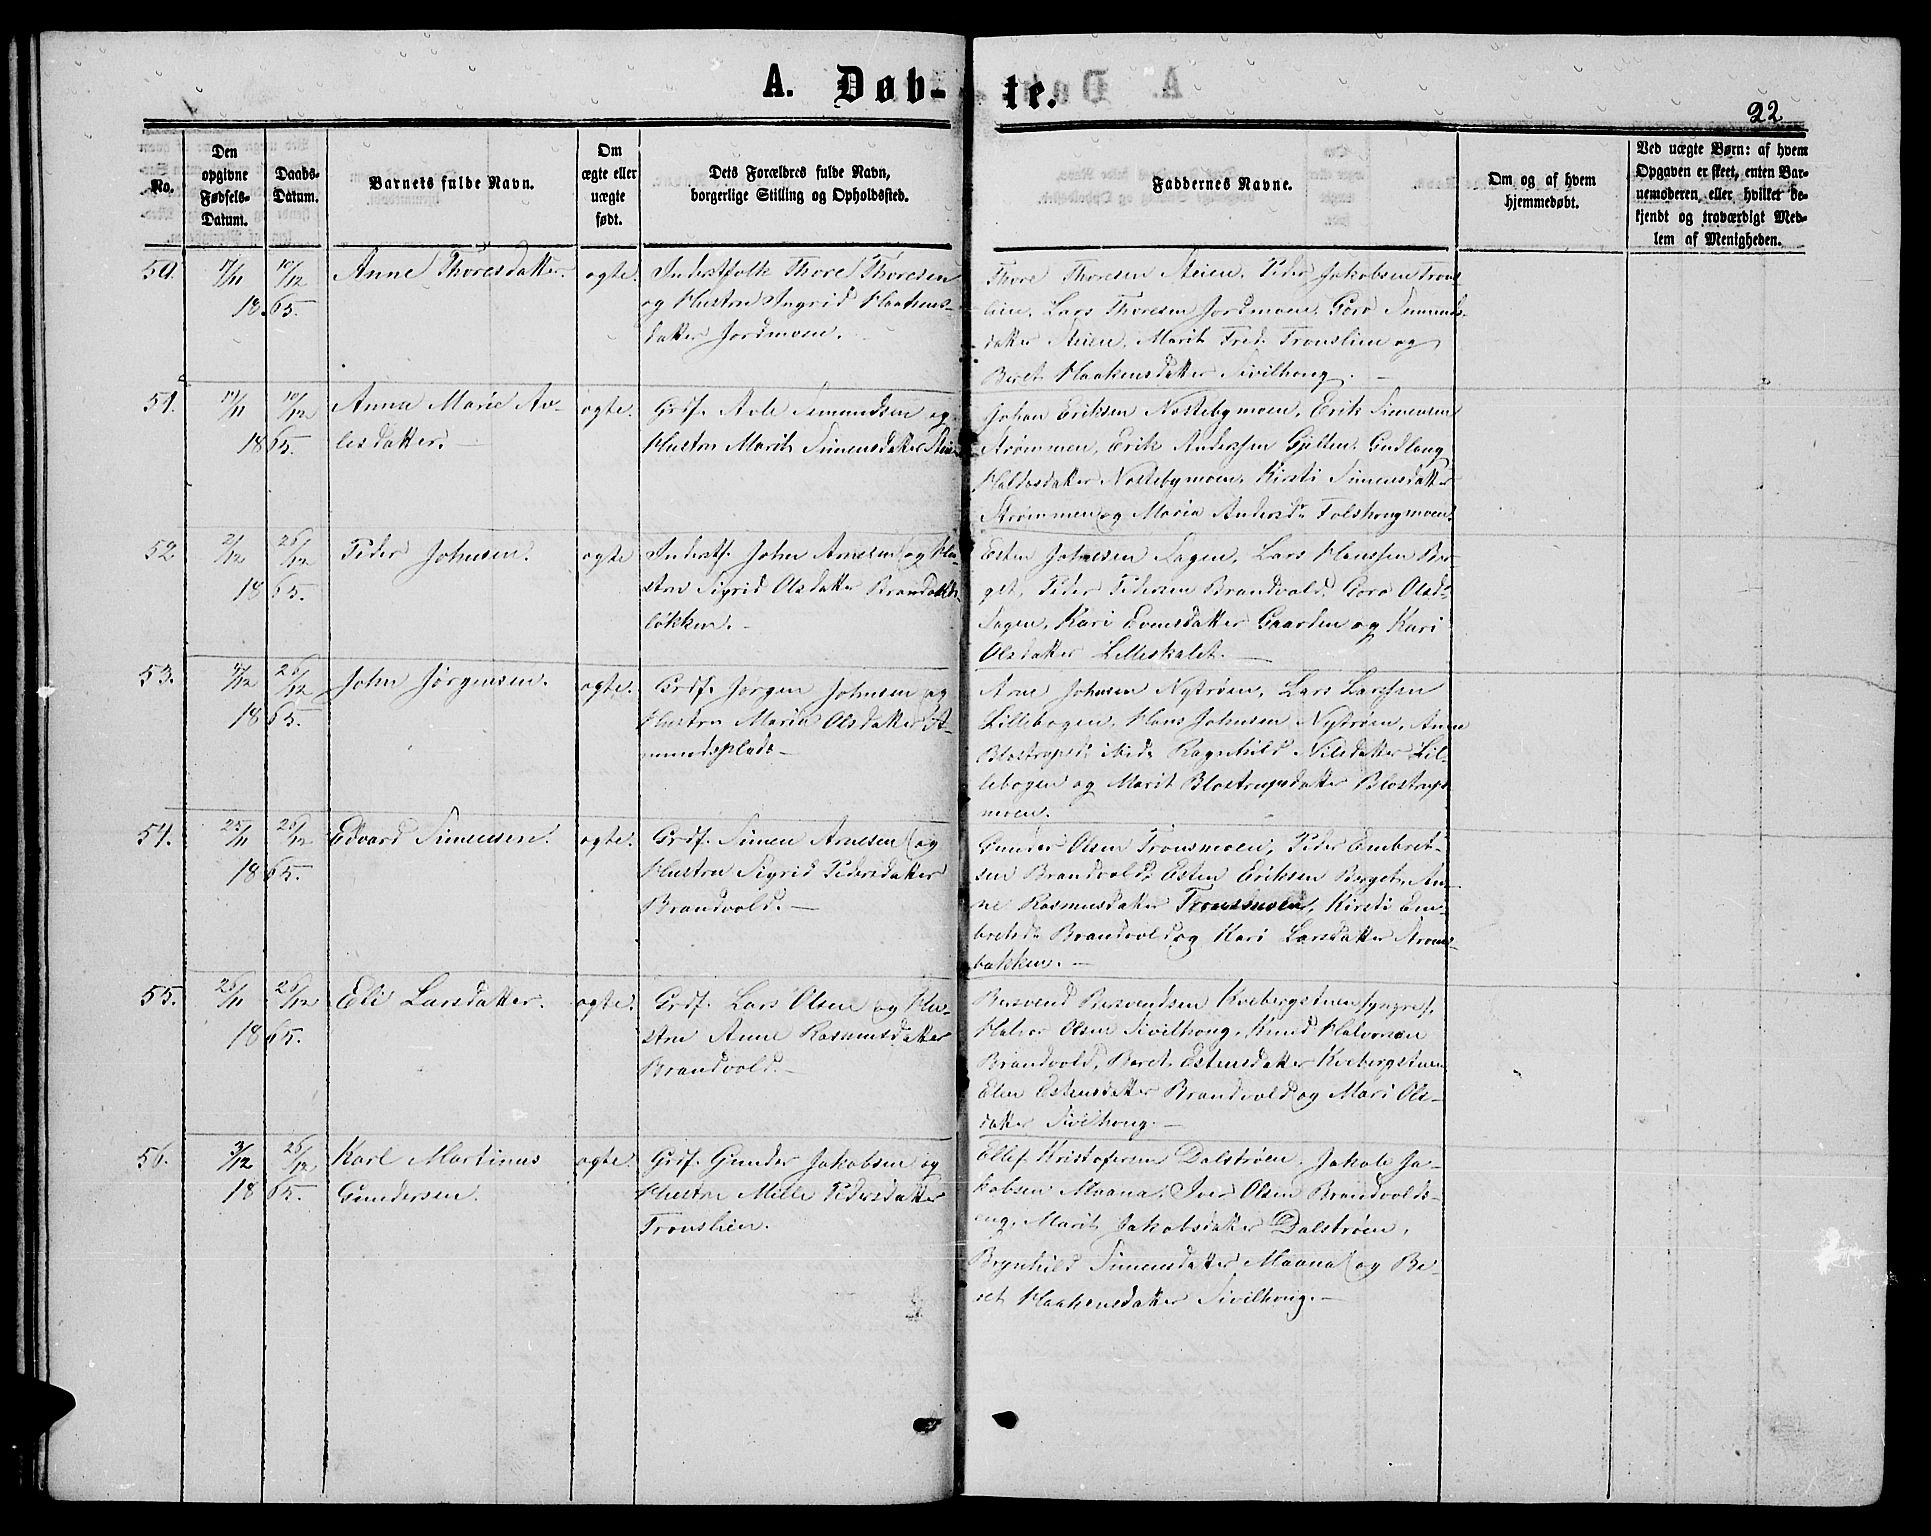 A. Døb-
te.
22
No.
Den opgivne Fødsels-Datum.
Daabs-Datum.
Barnets fulde Navn.
Om ægte eller uægte født.
Dets Forældres fulde Navn, borgerlige Stilling og Opholdssted.
Faddernes Navne.
Om og af hvem hjemmedøbt.
Ved uægte Børn: af hvem Opgaven er skeet, enten Barnemoderen, eller hvilket bekjendt og troværdigt Medlem af Menigheden.
50. 17/11 10/12 1865.
Anne Thoresdatter.
ogte.
Inderstfolk Thore Thoresen
og Hustru Ingrid Haakens-
datter Jordmoen.
Thore Thoresen Steien, Peder Jakobsen Trons-
lien, Lars Thoresen Jordmoen, Goro Simens-
datter Steien, Marit Fred. Tronslien og
Beret Haakensdatter Sivilhaug.
51. 19/11 10/12 1865.
Anna Marie Av-
lesdatter.
ogte.
Grdf. Avle Simundsen og
Hustru Marit Simensdatter
Johan Eriksen Nostebymoen, Erik Simensen
Strømmen, Erik Anderssen Gjelten, Gudlaug
Haldosdatter Nostebymoen, Kirsti Simensdatter
Strømmen og Maria Andersdr
52. 2/12 26/12 1865.
Peder Johnsen.
ogte
Inderstf. John Arnesen og Hu-
stru Sigrid Olsdatter Brandvold-
løkken.
Esten Johnsen Sagen, Lars Hanssen Ber-
get, Peder Pedersen Brandvold, Goro Olsdr
Sagen, Kari Evensdatter Gaarden og Kari
Olsdatter Lilleskalet.
53. 4/12 26/12 1865.
John Jørgensen.
ogte.
Grdf. Jørgen Johnsen og
Hustru Maria Olsdatter A-
mundsplads
Arne Johnsen Nystrøen, Lars Larssen
Lillebogen, Hans Johnsen Nystrøen, Anne
Blostrupsdr ibid. Ragnhild Nilsdatter Lil-
lebogen og Marit Blostrupsdatter Blostrups-
moen.
54. 25/11 26/12 1865.
Edvard Simensen.
ogte.
Grdf. Simen Arnesen og
Hustru Sigrid Pedersdatter
Brandvold.
Gunder Olsen Tronsmoen, Peder Embret-
sen Brandvold, Esten Eriksen Berget, An-
ne Rasmusdatter Tronsmoen, Kirsti Em-
bretsdr Brandvold og Kari Larsdatter Strøms-
bakken.
55. 26/11 26/12 1865.
Eli Larsdatter.
ogte.
Grdf. Lars Olsen og Hu-
stru Anne Rasmusdatter
Brandvold.
Bersvend Bersvendsen Kvebergstuen yngre,
Halvor Olsen Sivilhaug, Knud Halvorsen
Brandvold, Beret Estensdatter Kvebergstuen
Elen Estensdatter Brandvold og Mari Ols-
datter Sivilhaug.
56. 3/12 26/12 1865.
Karl Martinus
Gundersen.
ogte.
Grdf. Gunder Jakobsen og
Hustru Mille Pedersdatter
Tronslien.
Ellef Kristofersen Dalstrøen, Jakob Ja-
kobsen Maana, Iver Olsen Brandvolds-
eng, Marit Jakobsdatter Dalstrøen,
Brynhild Simensdatter Maana og Be-
ret Haakensdatter Sivilhaug.